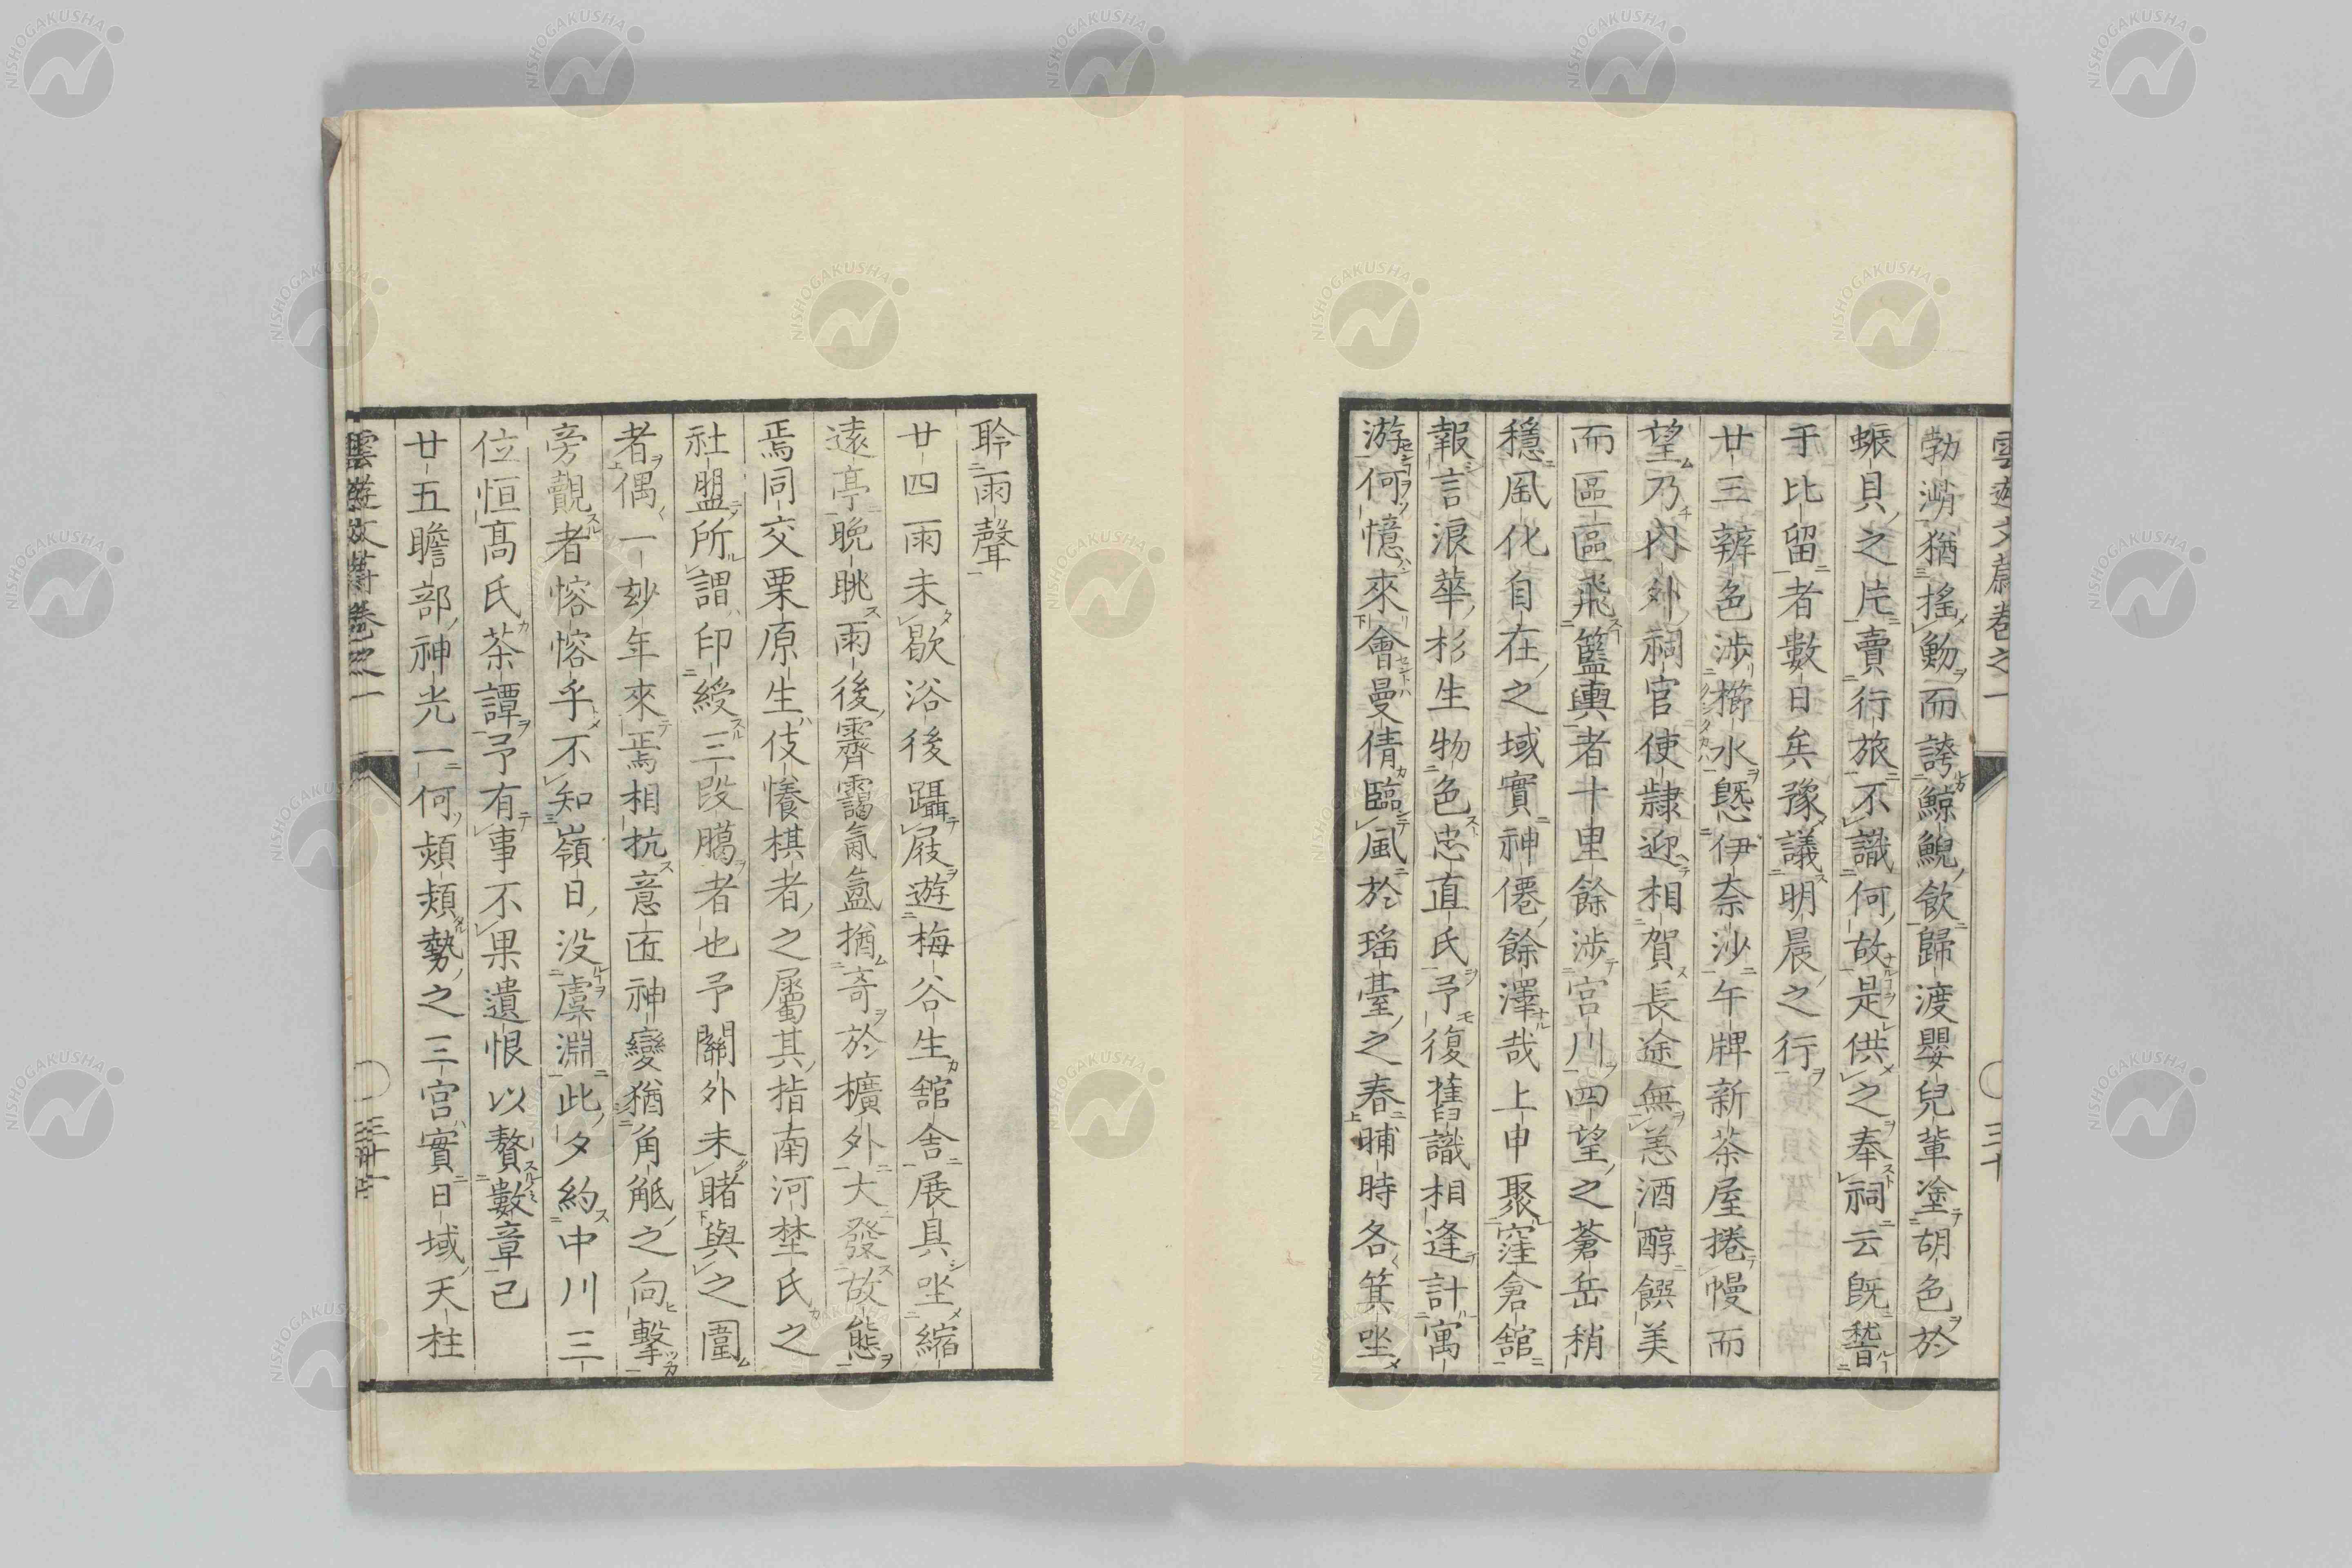 雲遊文蔚卷之一
三十
勃澇猶搖動而誇鯨鯢飲歸渡嬰兒輩塗胡色於
蜄貝之片賣行旅不識何故是供之奉祠云既稽
于比留者數日矣豫議明晨之行
廿三辨色涉櫛水憩伊奈沙午牌新茶屋捲幔而
望乃內外祠官使隷迎相賀長途無恙酒醇饌美
而區區飛籃輿者十里餘涉宮川四望之蒼岳稍
穩風化自在之域實神僊餘澤哉上申聚窪倉舘
報言浪華杉生物色忠直氏予復舊識相逢計寓
游何憶來會曼倩臨風於瑤臺之春晡時各箕坐
聆雨聲
廿四雨未歇浴後躡屐遊梅谷生舘舍展具坐縮
遠亭晚眺雨後霽靄氤氳猶奇於擴外大發故態
焉同交栗原生伎懩棋者之屬其指南河埜氏之
社盟所謂印綬三段臈者也予關外未睹與之圍
者偶一玅年來焉相抗意匠神變猶角觝之向擊
旁觀者熔熔乎不知嶺日沒虞淵此夕約中川三
位恒髙氏茶譚予有事不果遺恨以贅數章已
廿五瞻部神光一何頰頰勢之三宮實日域天柱
雲遊文蔚卷之一
三十一
NISHOGAKUSHA